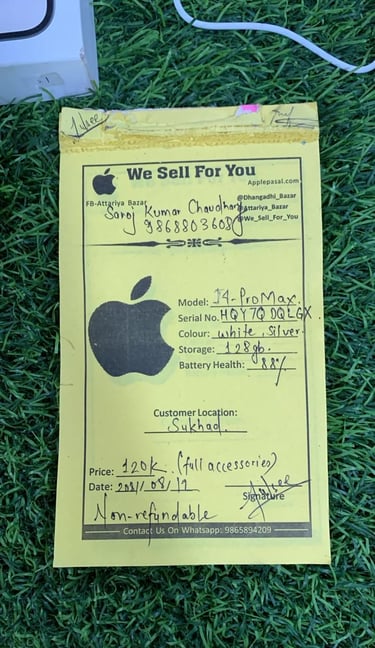 We Sell For You
Applepasal.com
FB-Attariya Bazar
@Dhangadhi_Bazar
@Attariya_Bazar
@We_Sell_For_You
Saroj Kumar Chaudhary
9868803608
Model: 14-ProMax.
Serial No. HQY7QDQLGX
Colour: white, silver.
Storage: 128gb.
Battery Health: 88%
Customer Location:
Sukhad.
Price: 120K. (full accessories)
Date: 2081/08/17
Signature
Non-refundable
Contact Us On Whatsapp: 9865894209